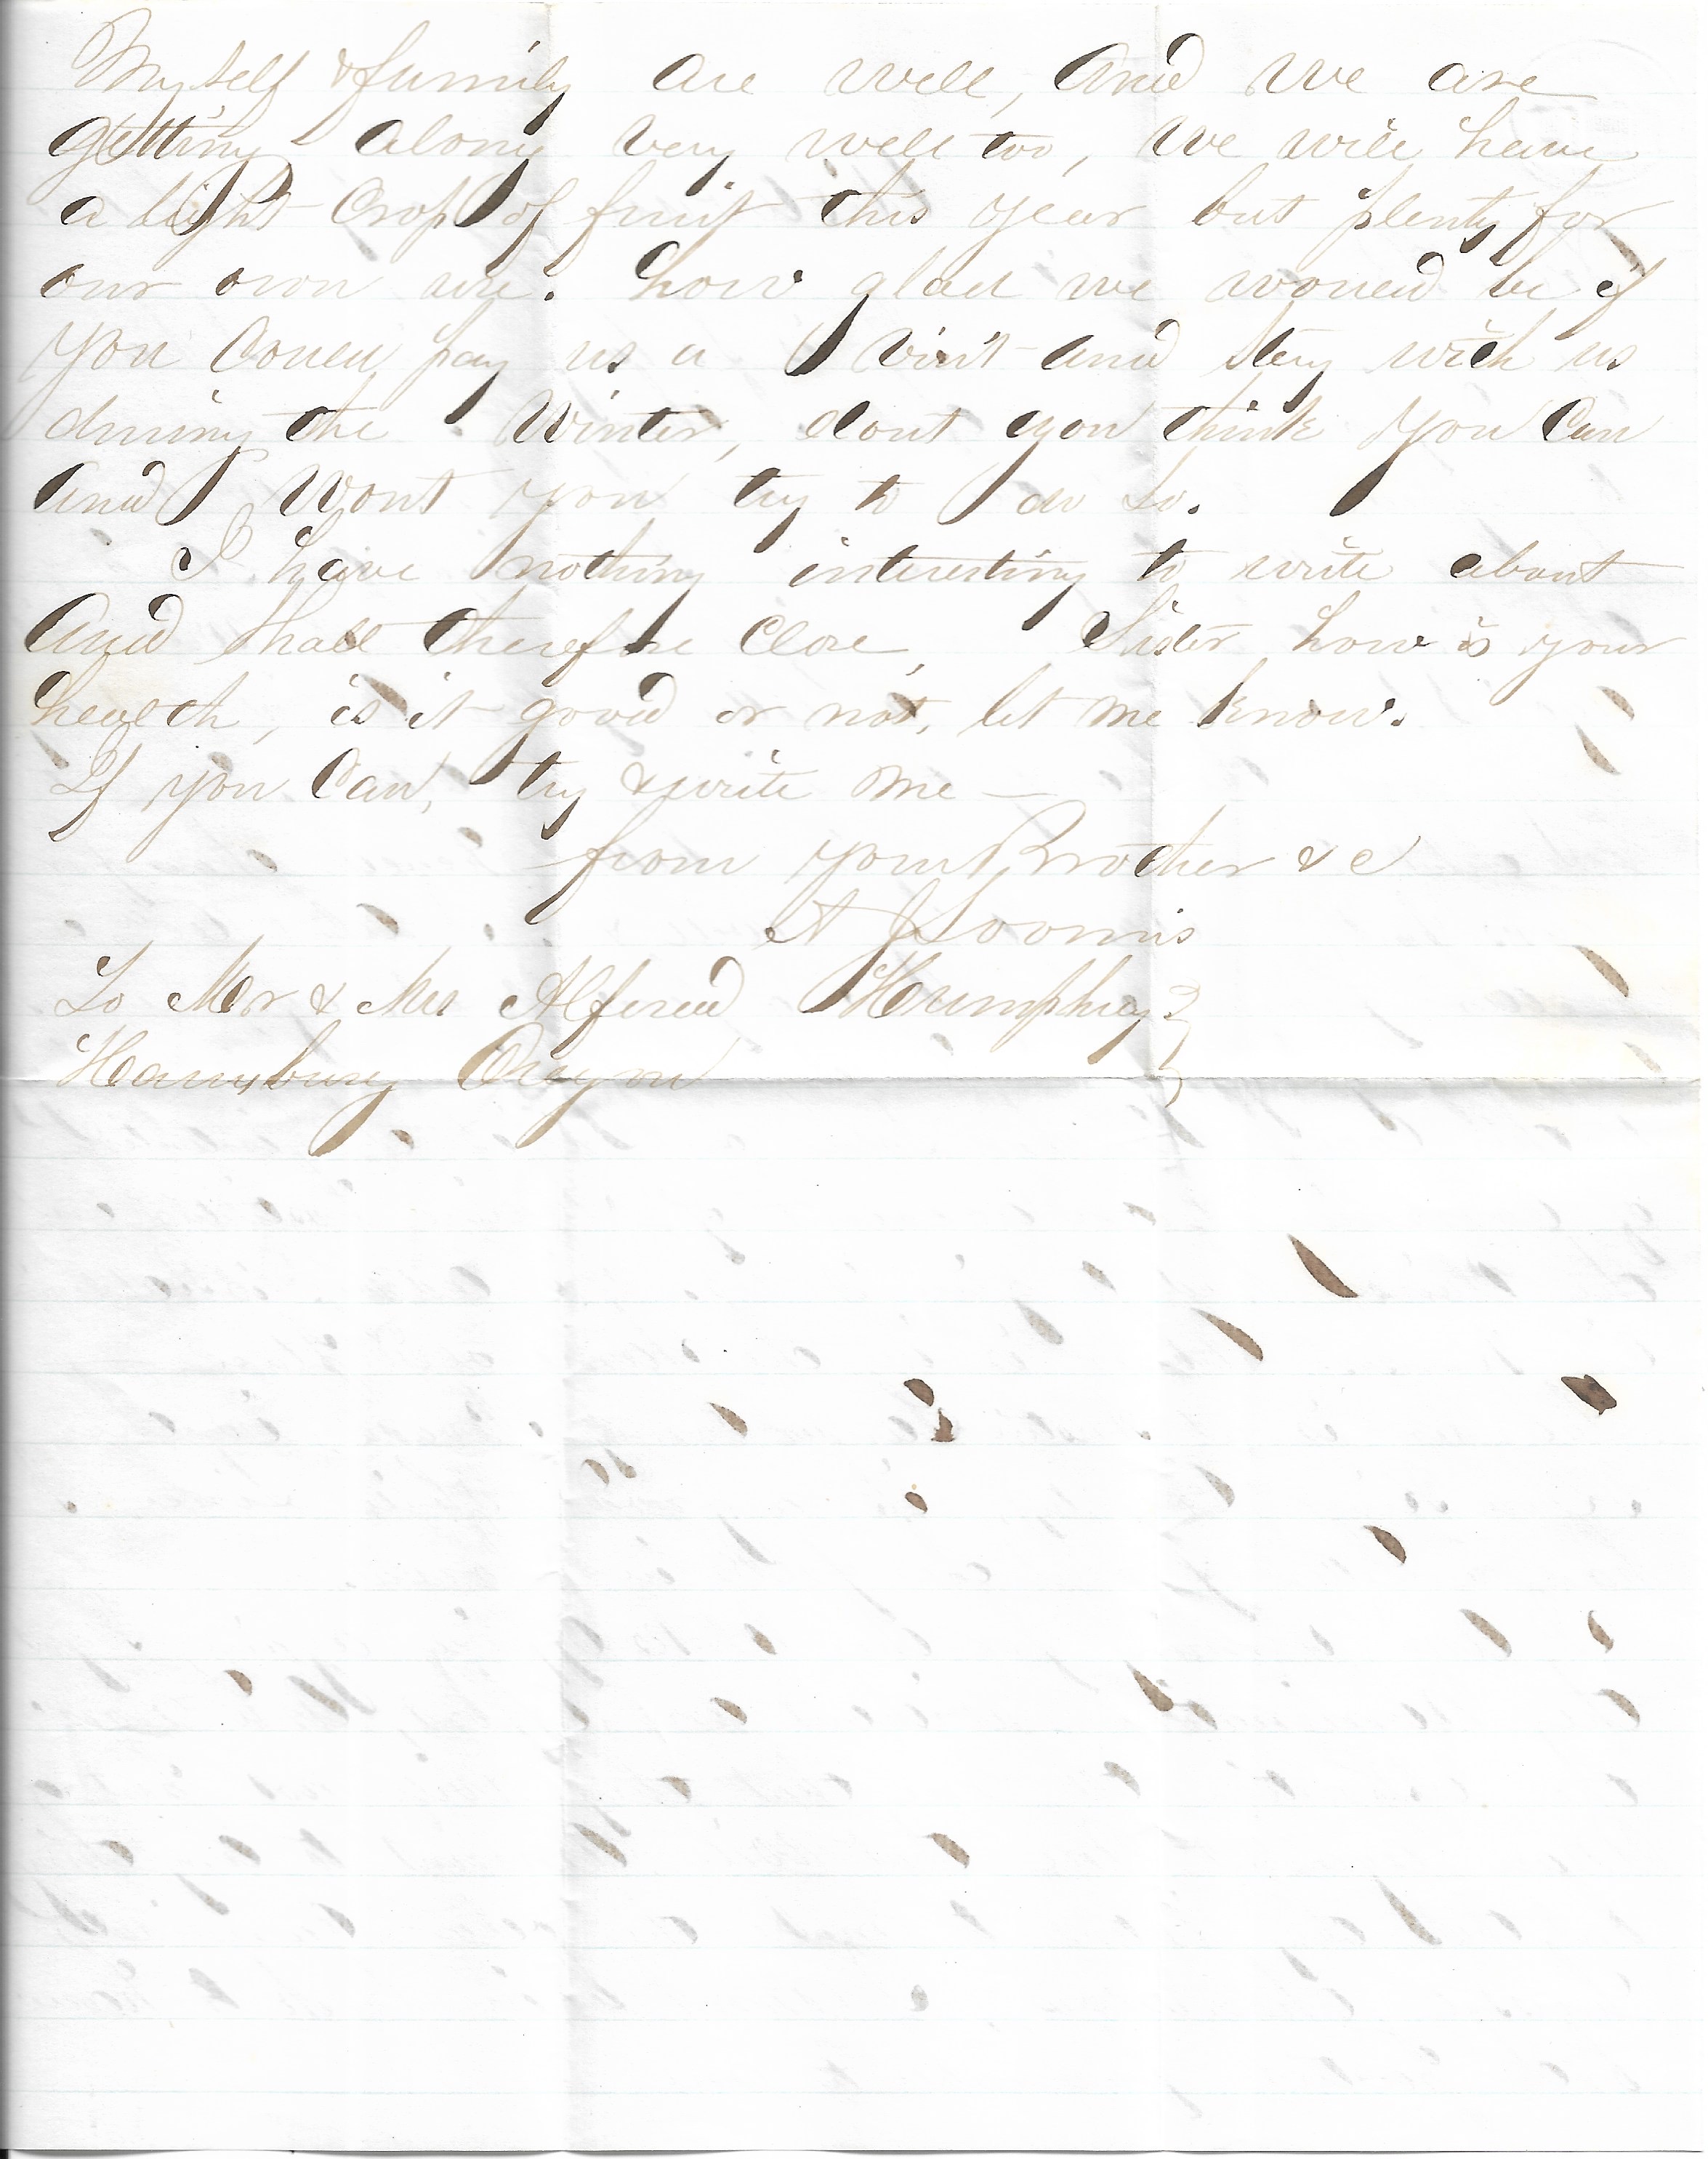 Myself & family are well, And we are
getting along very well too, We will have
a light Crop of fruit this year but plenty for
our own use. how glad we would be if
you Could pay us a Visit and stay with us
during the Winter, dont you think you Can
And Wont you try to do so.
I have nothing interesting to write about
And shall therefore Close, Sister how is your
health, is it good or not, let me know.
If you Can, try & write me —
from your Brother & c
A J Loomis
To Mr & Mrs Alfered Humphrey
Harrisburg Oregon